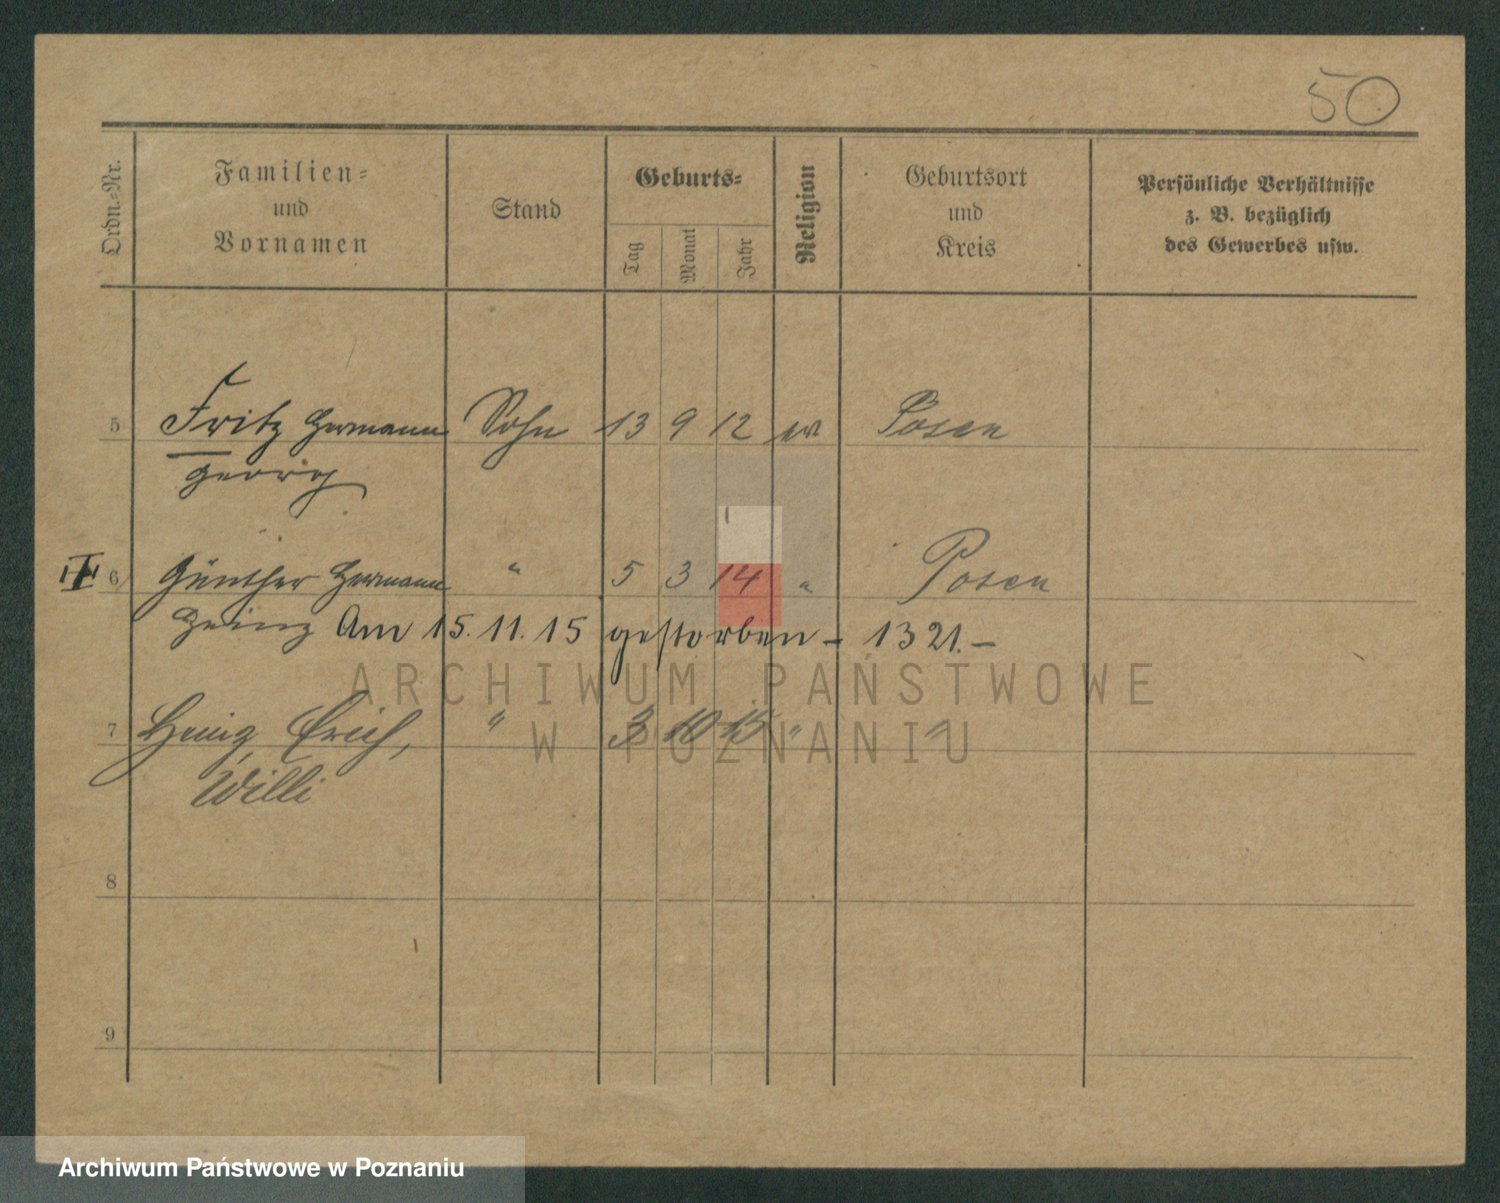 50
Ordn.-Nr.
Familien-
und
Vornamen
Stand
Geburts-
Tag
Monat
Jahr
Religion
Geburtsort
und
Kreis
Persönliche Verhältnisse
z. B. bezüglich
des Gewerbes usw.
5 Fritz Hermann Sohn 13 9 12 ev Posen
Georg
6 Günther Hermann " 5 3 14 " Posen
Heinz Am 15.11.15 gestorben – 1321.–
7 Erich, " 3 10 15 " "
Willi
8
9
ARCHIWUM PAŃSTWOWE
W POZNANIU
Archiwum Państwowe w Poznaniu